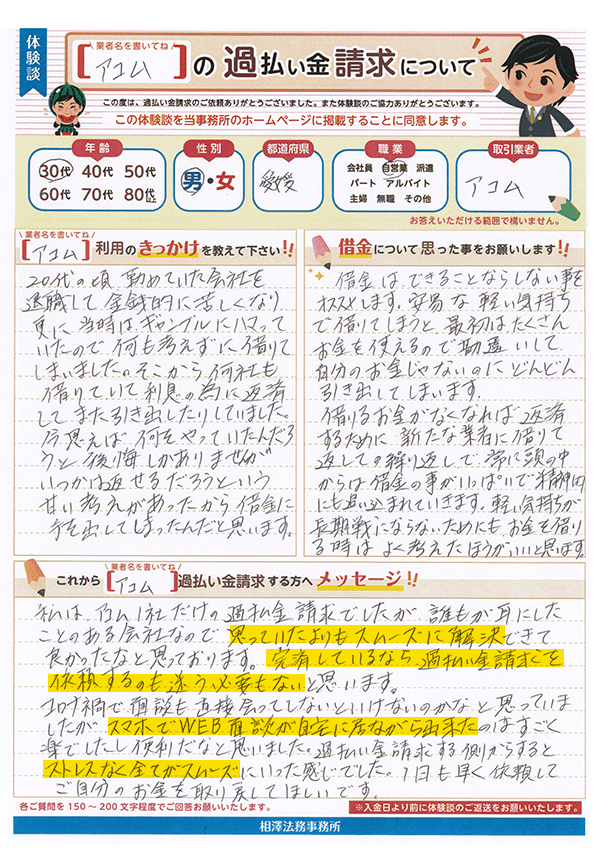 体験談
業者名を書いてね
[アコム]の過払い金請求について
この度は、過払い金請求のご依頼ありがとうございました。また体験談のご協力ありがとうございます。
この体験談を当事務所のホームページに掲載することに同意します。
年齢
30代 40代 50代
60代 70代 80代以上
性別
男・女
都道府県
愛媛
職業
会社員 自営業 派遣
パート アルバイト
主婦 無職 その他
取引業者
アコム
お答えいただける範囲で構いません。
業者名を書いてね
[アコム]利用のきっかけを教えて下さい!!
20代の頃 勤めていた会社を
退職して 金銭的に苦しくなり
更に 当時は、ギャンブルにハマって
いたので 何も考えずに借りて
しまいました。そこから何社も
借りていて利息の為に返済
してまた引き出したりしていました。
今思えば 何をやっていたんだろ
うと 後悔しかありませんが
いつかは返せるだろうという
甘い考えがあったから借金に
手を出してしまったんだと思います。
借金について思った事をお願いします!!
借金は、できることならしない事を
オススメします。安易な軽い気持ち
で借りてしまうと、最初は、たくさん
お金を使えるので勘違いして
自分のお金じゃないのにどんどん
引き出してしまいます。
借りるお金がなくなれば 返済
するために 新たな業者に借りて
返しての繰り返しで 常に頭の中
からは 借金の事がいっぱいで精神的
にも追い込まれていきます。軽い気持ちが
長期戦にならないためにも お金を借り
る時は よく考えたほうがいいと思います
業者名を書いてね
これから[アコム]過払い金請求する方へメッセージ!!
私は、アコム1社だけの過払金請求でしたが 誰もが耳にした
ことのある会社なので 思っていたよりもスムーズに解決できて
良かったなと思っております。完済しているなら、過払い金請求を
依頼するのも迷う必要もないと思います。
コロナ禍で面談も直接会ってしないといけないのかな と思っていま
したが、スマホでWEB面談が自宅に居ながら出来たのはすごく
楽でしたし便利だなと思いました。過払い金請求する側からすると
ストレスなく全てがスムーズにいった感じでした。1日も早く依頼して
ご自分のお金を取り戻してほしいです。
各ご質問を150～200文字程度でご回答お願いいたします。
※入金日より前に体験談のご返送をお願いいたします。
相澤法務事務所